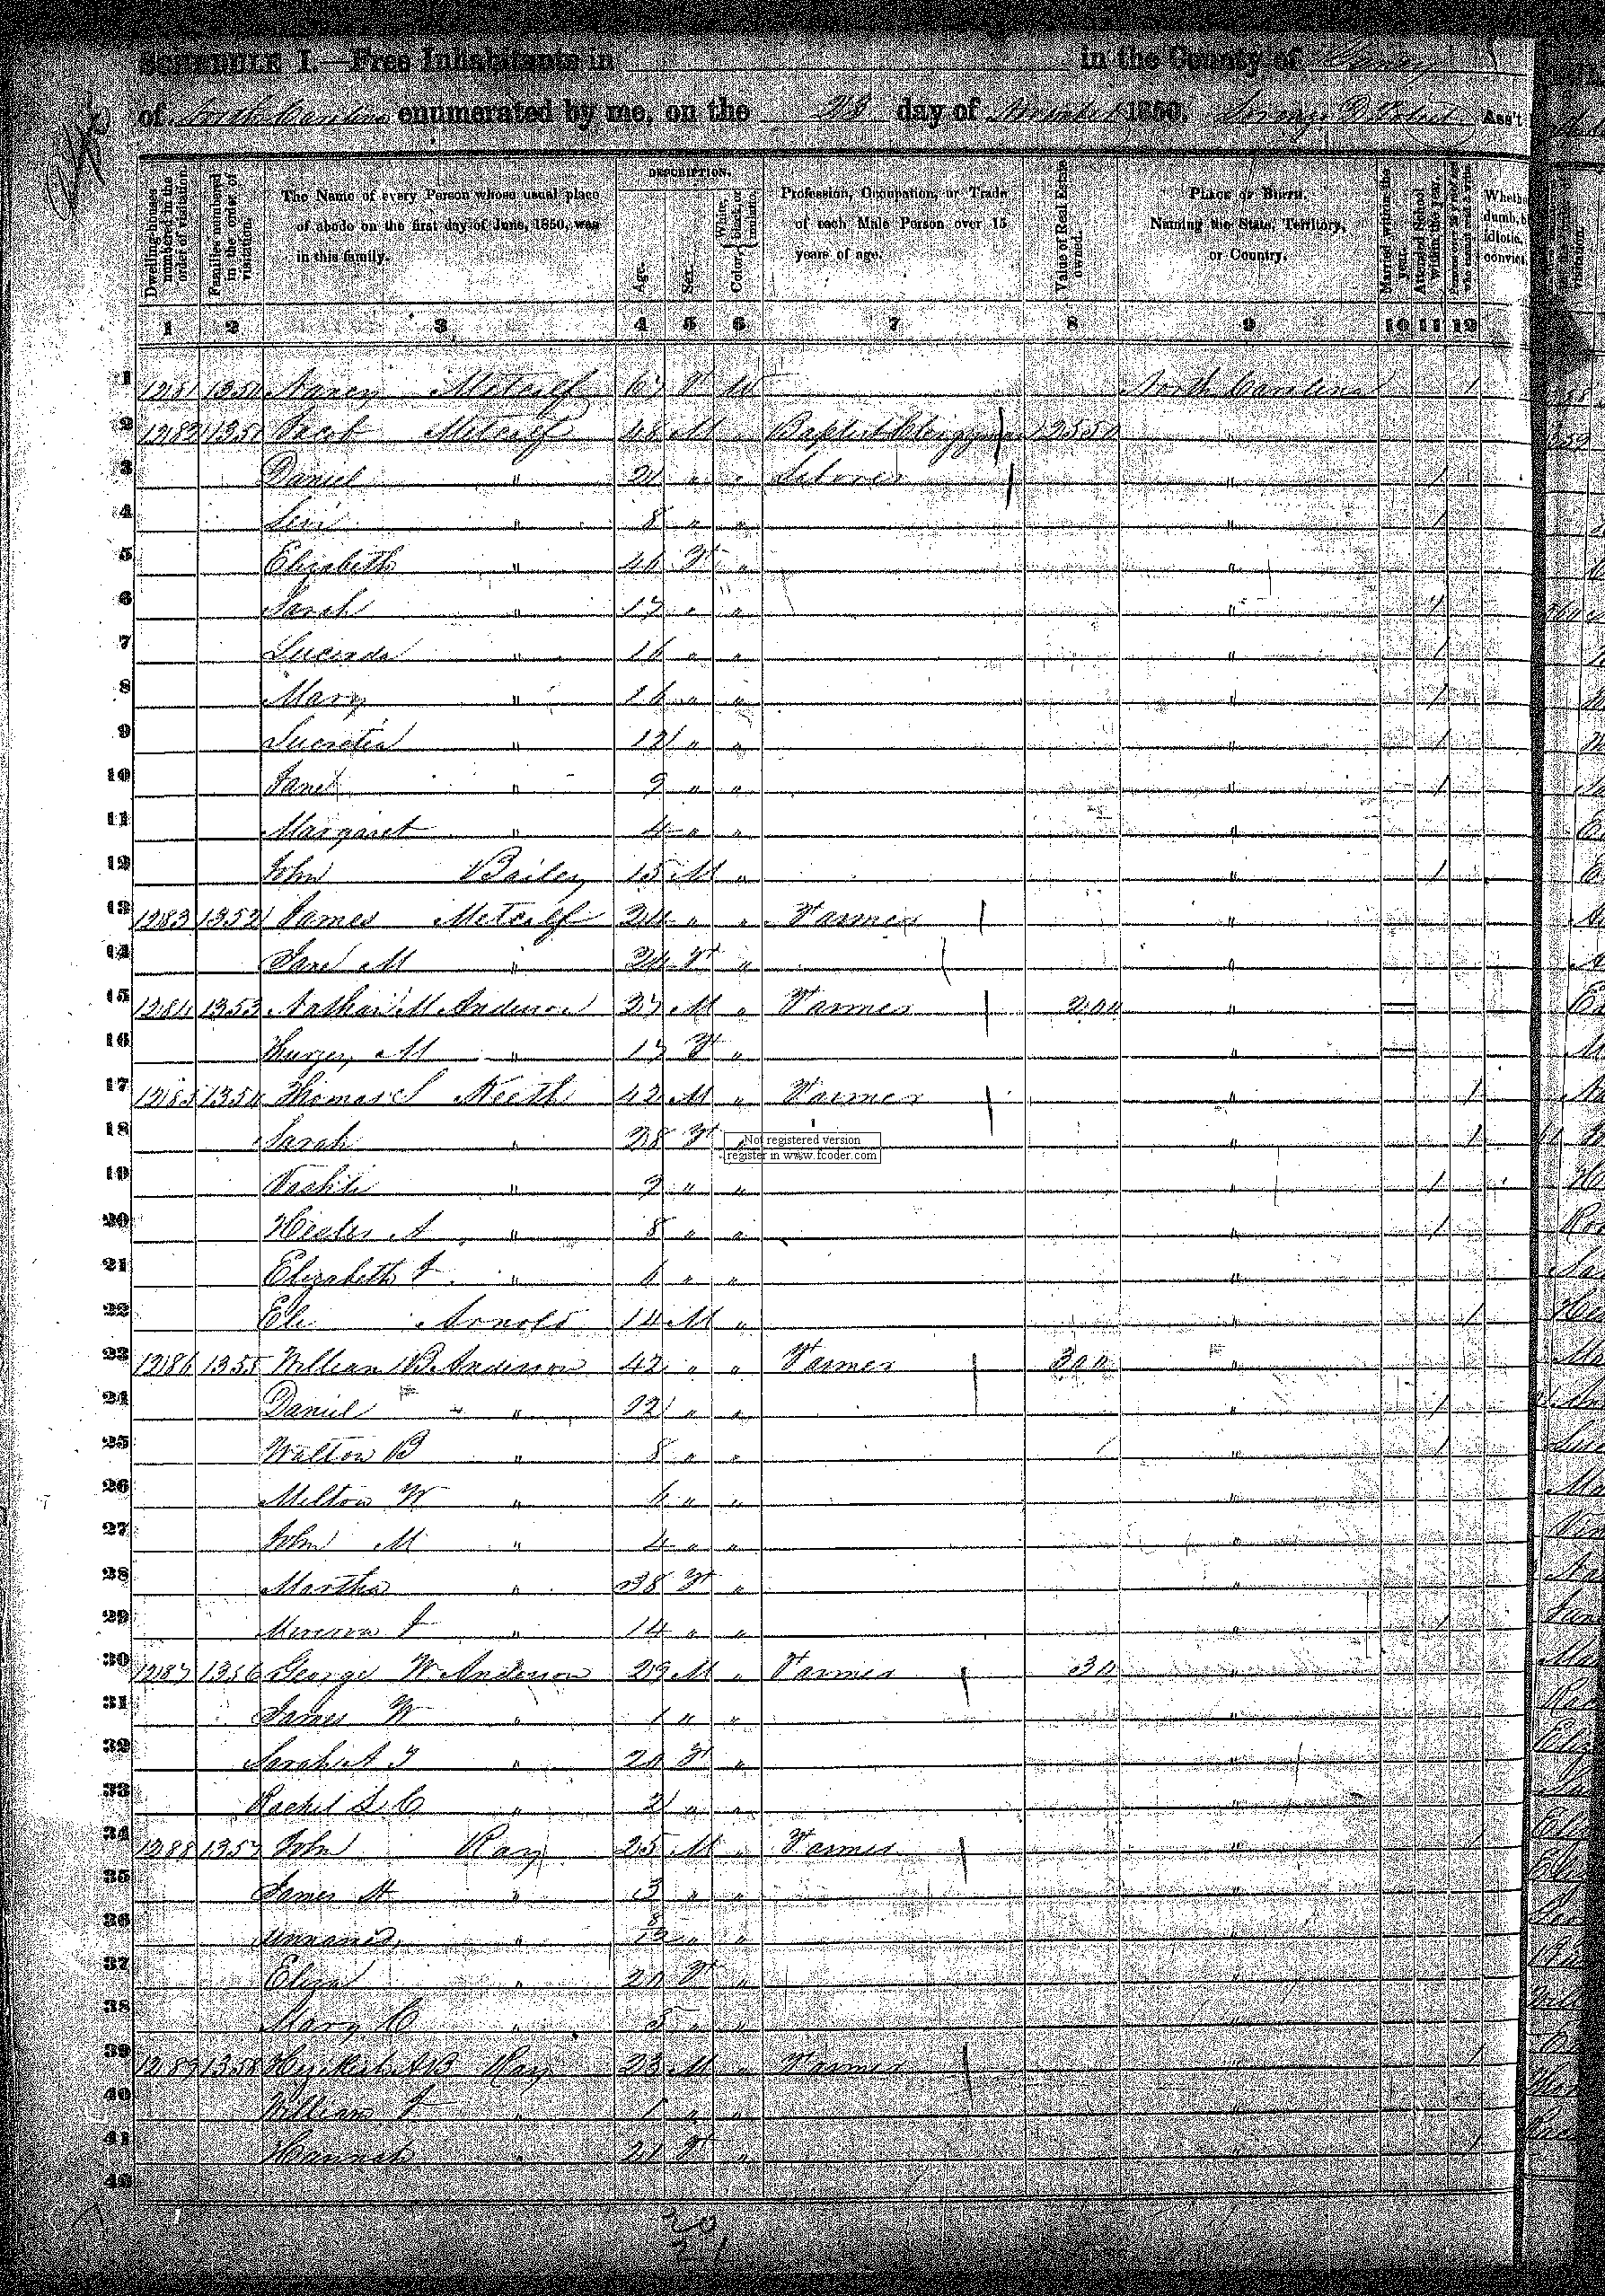 SCHEDULE I.—Free Inhabitants in in the County of Yancy
of North Carolina enumerated by me, on the 23 day of November 1850. Ass't
Dwelling-houses numbered in the order of visitation.
Families numbered in the order of visitation.
The Name of every Person whose usual place of abode on the first day of June, 1850, was in this family.
DESCRIPTION.
Age.
Sex.
Color, White, black, or mulatto.
Profession, Occupation, or Trade of each Male Person over 15 years of age.
Value of Real Estate owned.
PLACE OF BIRTH. Naming the State, Territory, or Country.
Married within the year.
Attended School within the year.
Persons over 20 y'rs of age who cannot read & write.
Whether dumb, idiotic, convict.
1 2 3 4 5 6 7 8 9 10 11 12
1 1281 1350 Nancy Metcalf 67 F W North Carolina 1
2 1282 1351 Jacob Metcalf 48 M " Baptist Clergyman "
3 Daniel " 21 " " Laborer " 1
4 Levi " 8 " " " 1
5 Elizabeth " 46 F " "
6 Sarah " 17 " " " 1
7 Lucinda " 16 " " " 1
8 Mary " 16 " " " 1
9 Lucretia " 12 " " " 1
10 Jane " 9 " " " 1
11 Margaret " 4 " " "
12 John Bailey 15 M " " 1
13 1283 1352 James Metcalf 24 " " Farmer "
14 Jane M " 24 F " "
15 1284 1353 Nathan M Anderson 27 M " Farmer 200 "
16 M " 17 F " "
17 1285 1354 Thomas S Keith 42 M " Farmer " 1
18 Sarah " 38 F " " 1
Not registered version
register in www.fcoder.com
19 Vashti " 9 " " " 1
20 Hester A " 8 " " " 1
21 Elizabeth J " 6 " " "
22 Eli Arnold 14 M " " 1
23 1286 1355 William B Anderson 42 " " Farmer 300 "
24 Daniel " 12 " " " 1
25 Walton B " 8 " " " 1
26 Milton W " 6 " " "
27 John M " 4 " " "
28 Martha " 38 F " "
29 J " 14 " " " 1
30 1287 1356 George W Anderson 29 M " Farmer 30 "
31 James W " 1 " " "
32 Sarah A " 20 F " "
33 Rachel L C " 2 " " "
34 1288 1357 John Ray 25 M " Farmer " 1
35 James H " 3 " " "
36 Unnamed " 8/12 " " "
37 Eliza " 20 F " "
38 Mary C " 5 " " "
39 1289 1358 Ray 23 M " Farmer " 1
40 William J " 1 " " "
41 Hannah " 21 F " " 1
42
20
21